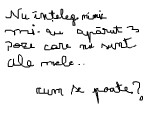 Nu înteleg nimi
mi-au apărut 3
poze care nu sunt
ale mele..
cum se poate?